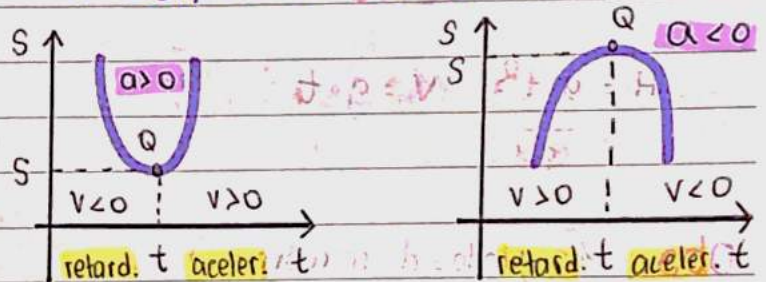 S
a>0
Q
S
V<0 V>0
retard. t aceler. t
S
Q
a<0
S
V>0 V<0
retard. t aceler. t